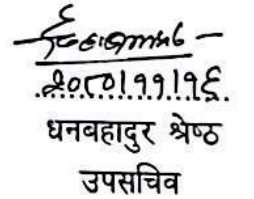 २०८०।११।१६
धनबहादुर श्रेष्ठ
उपसचिव